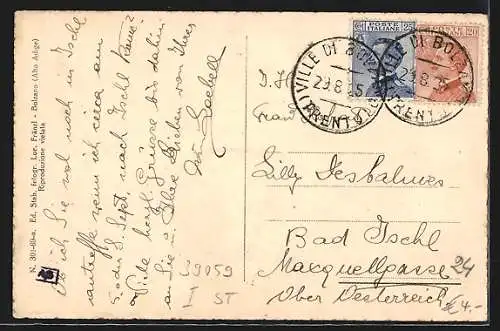 N. 301-III-a. Ed. Stab. fotogr. Lor. Fränzl - Bolzano (Alto Adige)
Riproduzione vietata
Ob ich Sie wol noch in Ischl
antreffe wenn ich circa am
5 oder 8. Sept. nach Ischl kame?
Viele herzl. Grüsse bis dahin
an Sie u. Ihre Lieben von Ihrer
POSTE ITALIANE
POSTE ITALIANE
25
20
VILLE DI BOLZANO
(TRENTO)
29.8.25
VILLE DI BOLZANO
(TRENTO)
29.8.25
Frau
Lilly
Bad Ischl
Maxquellgasse 24
Ober Oesterreich
L9059
I ST
€ 4.-